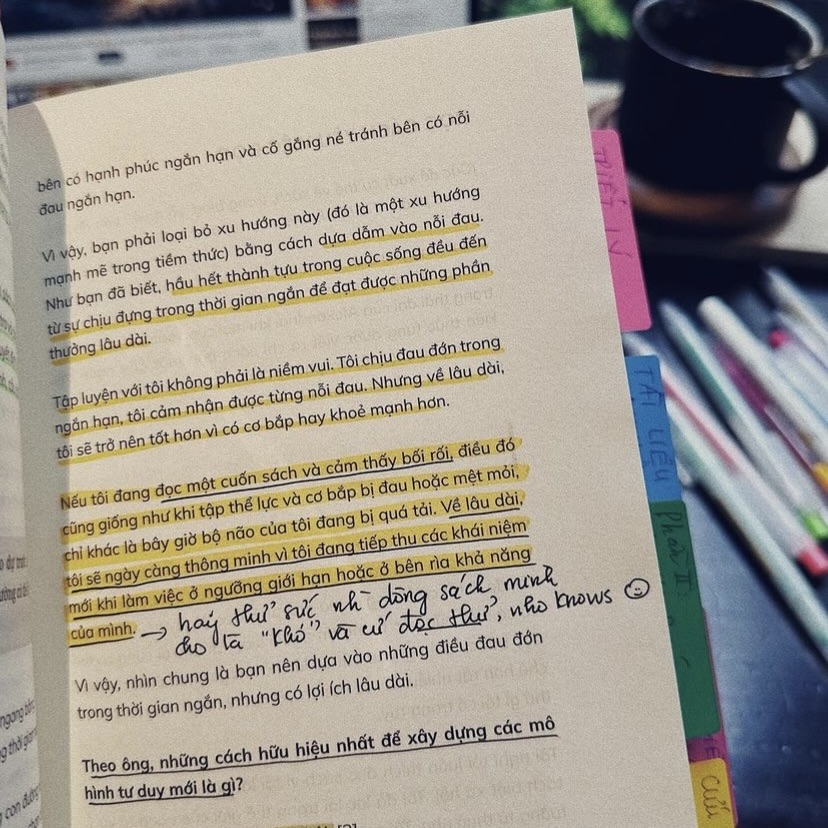 bên có hạnh phúc ngắn hạn và cố gắng né tránh bên có nỗi
đau ngắn hạn.
Vì vậy, bạn phải loại bỏ xu hướng này (đó là một xu hướng
mạnh mẽ trong tiềm thức) bằng cách dựa dẫm vào nỗi đau.
Như bạn đã biết, hầu hết thành tựu trong cuộc sống đều đến
từ sự chịu đựng trong thời gian ngắn để đạt được những phần
thưởng lâu dài.
Tập luyện với tôi không phải là niềm vui. Tôi chịu đau đớn trong
ngắn hạn, tôi cảm nhận được từng nỗi đau. Nhưng về lâu dài,
tôi sẽ trở nên tốt hơn vì có cơ bắp hay khoẻ mạnh hơn.
Nếu tôi đang đọc một cuốn sách và cảm thấy bối rối, điều đó
cũng giống như khi tập thể lực và cơ bắp bị đau hoặc mệt mỏi,
chỉ khác là bây giờ bộ não của tôi đang bị quá tải. Về lâu dài,
tôi sẽ ngày càng thông minh vì tôi đang tiếp thu các khái niệm
mới khi làm việc ở ngưỡng giới hạn hoặc ở bên rìa khả năng
của mình. → hãy thử sức nh~ dòng sách mình
cho là "khó" và cứ đọc thử, who knows ☺
Vì vậy, nhìn chung là bạn nên dựa vào những điều đau đớn
trong thời gian ngắn, nhưng có lợi ích lâu dài.
Theo ông, những cách hữu hiệu nhất để xây dựng các mô
hình tư duy mới là gì?
TRIẾT LÝ
TÀI LIỆU
Phần II:
CUỐI